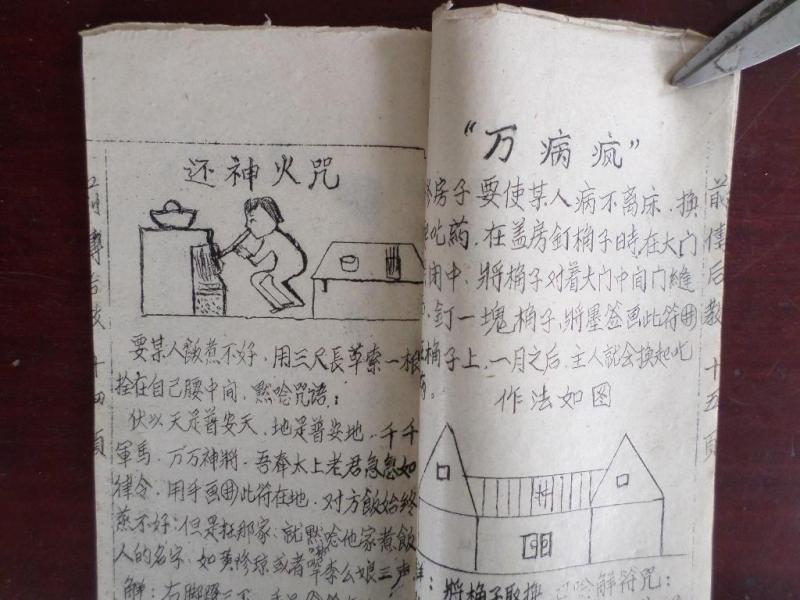 还神火咒
要某人飯煮不好,用三尺長草索一根
拴在自己腰中间,黙唸咒语:
伏以天是普安天,地是普安地,千千
軍馬,万万神判,吾奉太上老君急急如
律令,用手画此符在地,对方飯始終
煮不好;但是在那家,就黙唸他家煮飯
人的名字,如黄修琼或者李公娘三声
解:右脚
十四頁
"万病疯"
房子要使某人病不离床,换
吃药,在盖房釘桷子时,在大门
中,將桷子对着大门中间门縫
釘一塊桷子,將墨签画此符
桷子上,一月之后,主人就会换起吃
药。
作法如图
將桷子取换,唸解符咒:
前傳后教 十五頁